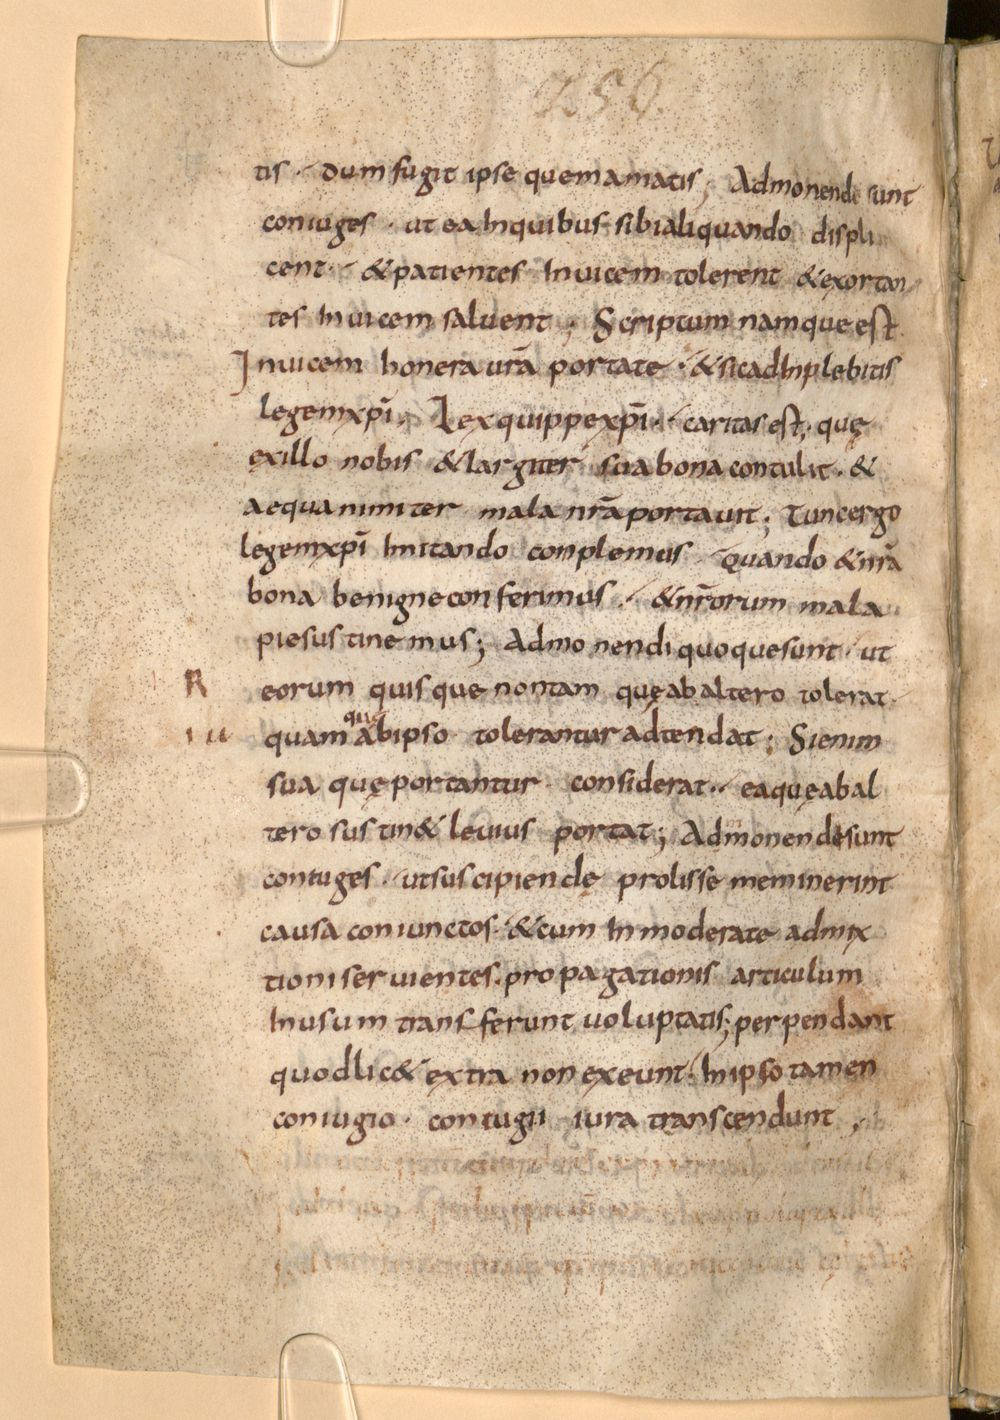 256.
tis · dum fugit ipse quem amatis ; Admonende sunt
coniuges · ut ea Inquibus sibi aliquando displi
cent · & patientes Inuicem tolerent & exortan
tes Inuicem saluent ; Scriptum namque est
Inuicem honera urā portate · & sic adInplebitis
legem xpī . Lex quippe xpī · caritas est ; quę
ex illo nobis & largiter sua bona contulit · &
aequanimiter mala nrā portauit ; Tunc ergo
legem xpī Imitando conplemus · Quando & nrā
bona benigne conferimus · & nrōrum mala
pie sustinemus ; Admonendi quoque sunt · ut
R eorum quisque non tam quę ab altero tolerat ·
quam quę ab ipso tolerantur adtendat ; Si enim
sua quę portantur considerat · ea quę ab al
tero sustin& leuius portat ; Admonende sunt
coniuges · ut suscipiendę prolis se meminerint
causa coniunctos · & cum Inmoderate admix
tioni seruientes . propagationis articulum
In usum transferunt uoluptatis ; perpendant
quod lic& extra non exeunt · In ipso tamen
coniugio · coniugii iura transcendunt ;